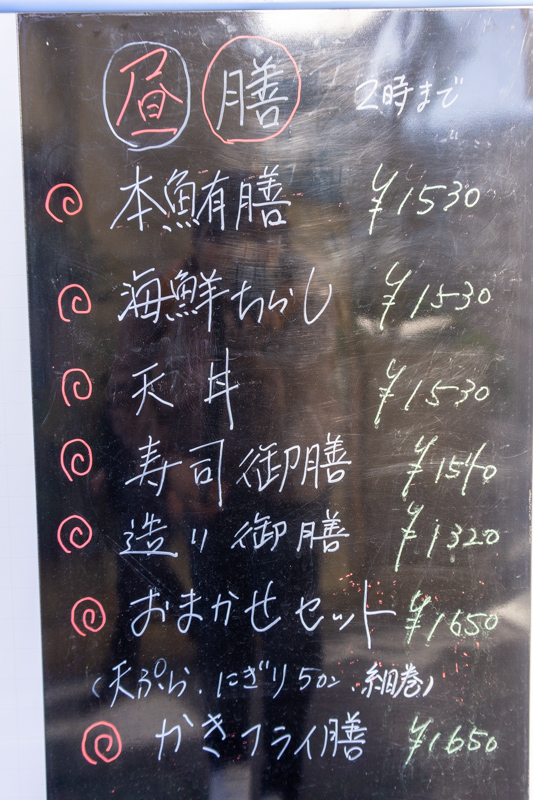 昼膳 2時まで
本鮪膳 ¥1530
海鮮ちらし ¥1530
天丼 ¥1530
寿司御膳 ¥1540
造り御膳 ¥1320
おまかせセット ¥1650
(天ぷら、にぎり5コ、細巻)
かきフライ膳 ¥1650